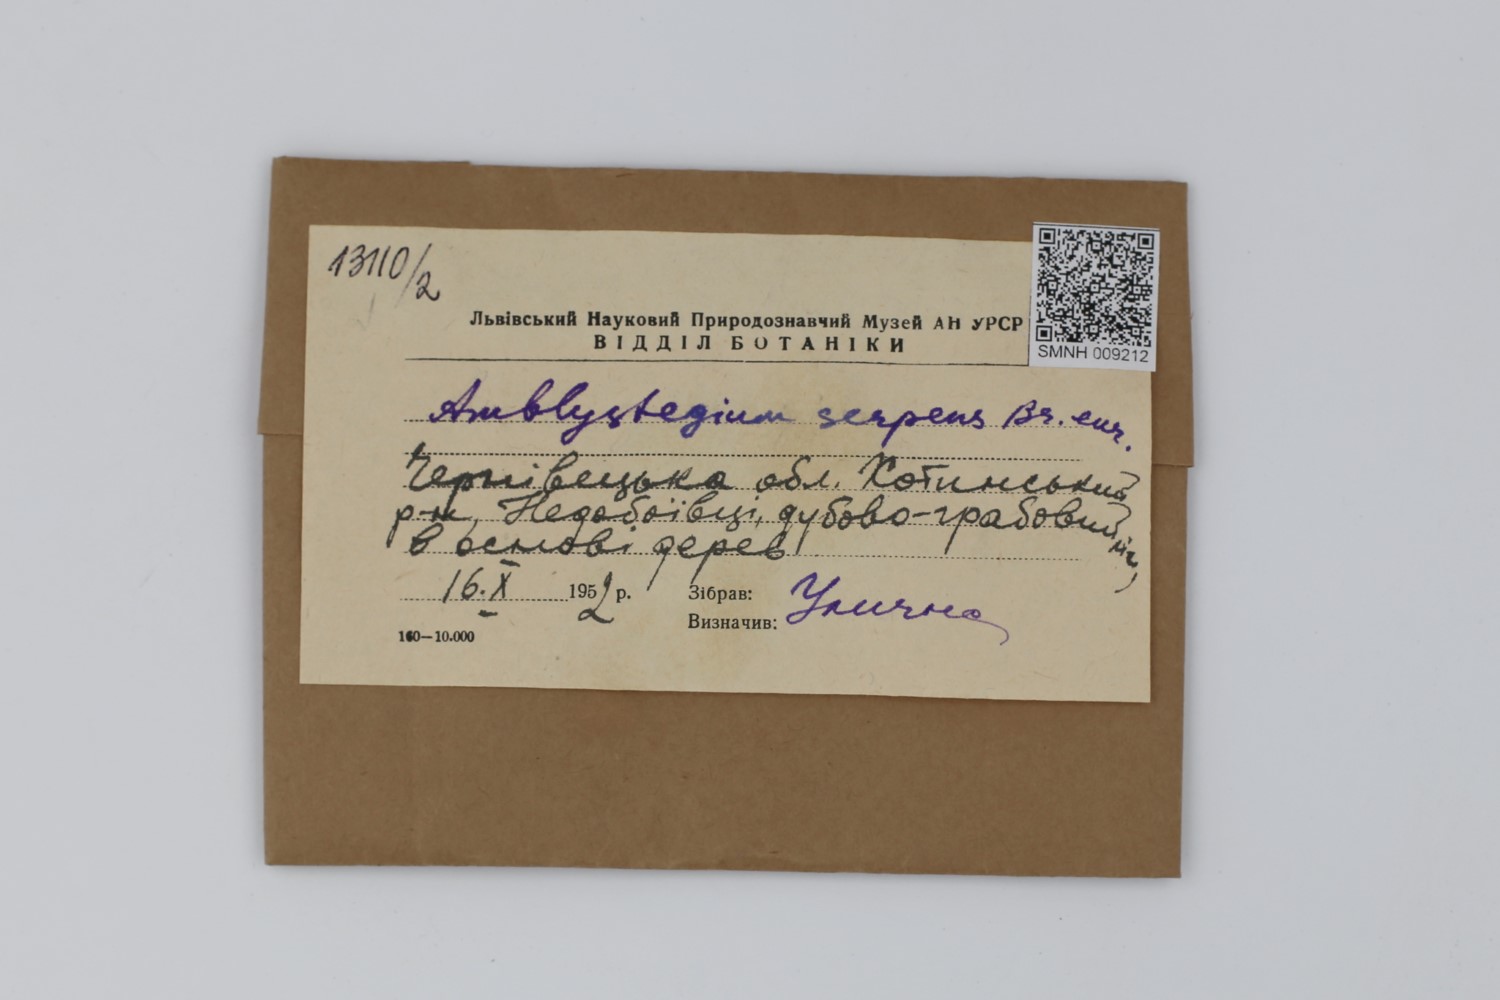 13110/2
Львівський Науковий Природознавчий Музей АН УРСР
ВІДДІЛ БОТАНІКИ
SMNH 009212
Amblystegium serpens Br. eur.
Чернівецька обл. Хотинський
р-н, Недобоївці, дубово-грабовий ліс,
в основі дерев
16.X 1952 р.
Зібрав: Улична
Визначив:
160—10.000